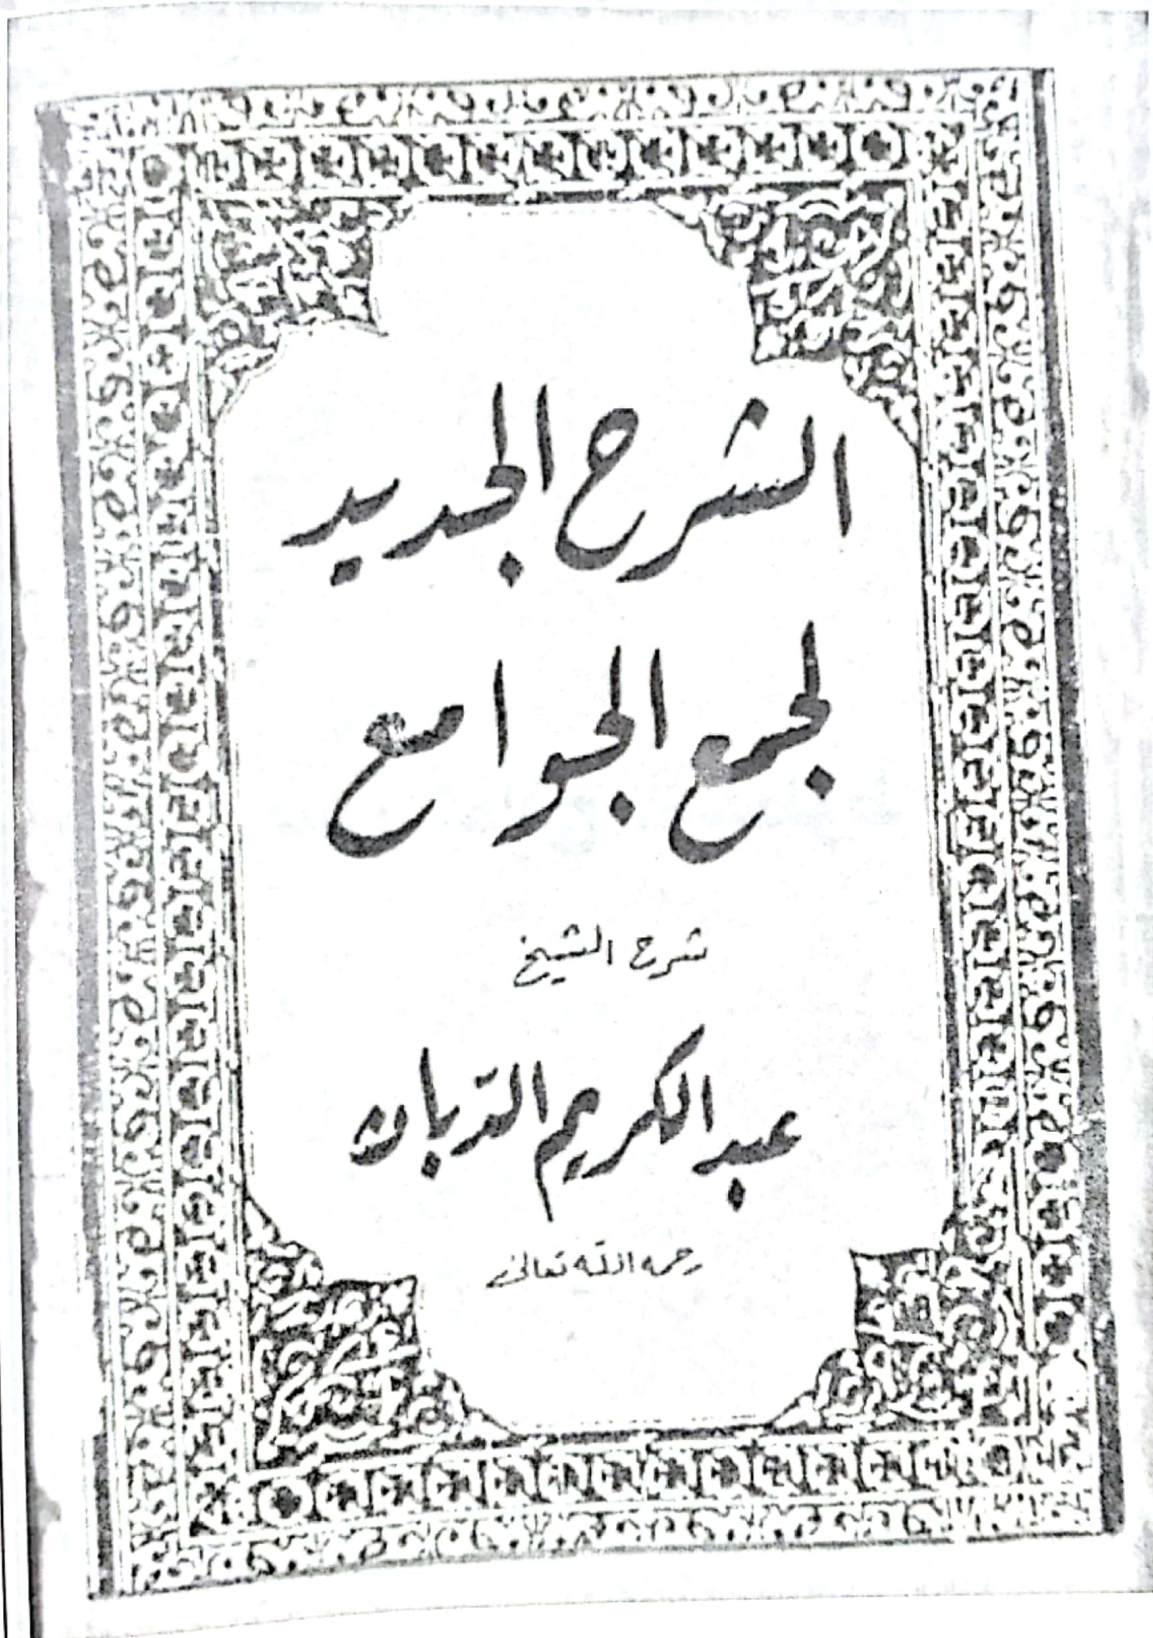 الشرح الجديد
لجمع الجوامع
شرح الشيخ
عبد الكريم الدبان
رحمه الله تعالى